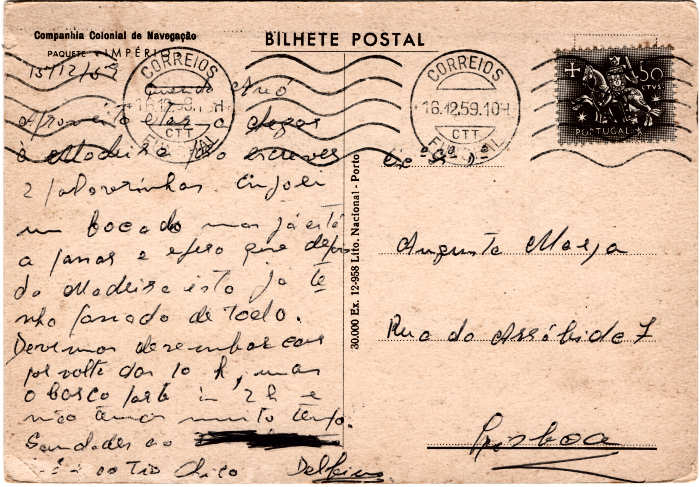 Companhia Colonial de Navegação
PAQUETE «IMPÉRIO»
BILHETE POSTAL
15/12/59
CORREIOS
16.12.59.10H
CTT
FUNCHAL
CORREIOS
16.12.59.10H
CTT
FUNCHAL
50
CTVS
PORTUGAL
Querido
Aproveito
à Madeira para escrever
2 palavrinhas. Enjoei
um bocado mas já está
a passar e espero que depois
da Madeira isto já te
nha passado de todo.
Devemos desembarcar
por volta das 10 h, mas
o barco parte às 2 h e
não temos muito tempo.
Saudades ao
ao Tio Chico
30.000 Ex. 12-958 Lito. Nacional - Porto
Augusto
Rua da Arrábida 7
Lisboa